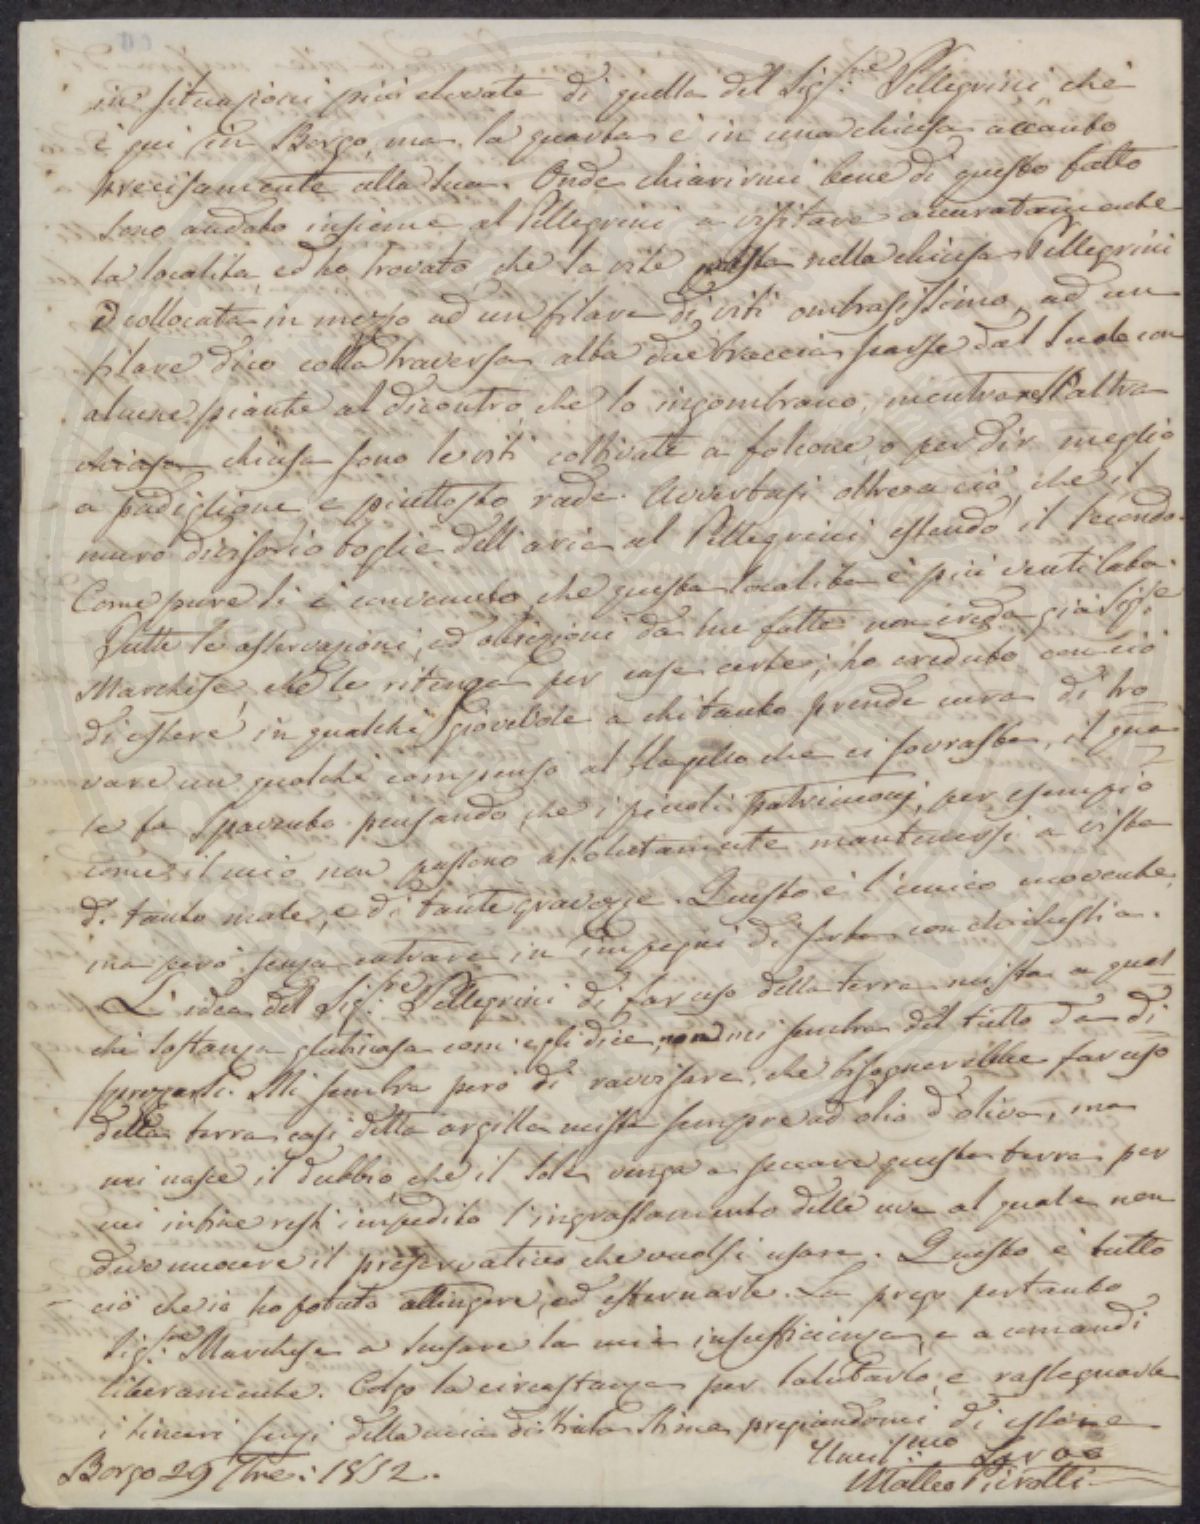 in situazioni più elevate di quella del Sig.re Pellegrini che
è qui in Borgo, ma la quarta è in una chiusa accanto
precisamente alla sua. Onde chiarirmi bene di questo fatto
sono andato insieme al Pellegrini a visitare accuratamente
la località, ed ho trovato, che la vite posta nella chiusa Pellegrini
è collocata in mezzo ad un filare di viti ombrosissimo, ad un
filare dico colla traversa alta due braccia scarse dal suolo con
alcune piante al dicontro, che lo ingombrano, mentre nell'altra
chiusa sono le viti coltivate a folcone, o per dir meglio
a padiglione e piuttosto rade. Avvertasi oltre a ciò, che il
muro divisorio toglie dell'aria al Pellegrini essendo il secondo.
Come pure si è convenuto, che questa località è più ventilata.
Tutte le osservazioni, ed obiezioni da me fatte non creda già Sig.re
Marchese, che le ritenga per cose certe; ho creduto con ciò
di essere in qualche giovevole a chi tanto prende cura di tro
vare un qualche compenso al flagello che ci sovrasta, il qua
le fa spavento pensando, che i piccoli patrimonj, per esempio
come il mio non possono assolutamente mantenersi a vista
di tanto male, e di tante gravezze. Questo è l'unico movente,
ma però senza entrare in impegni di sorta con chi chessia.
L'idea del Sig.re Pellegrini di far uso della terra mista a qual
che sostanza glutinosa com'egli dice, non mi sembra del tutto da di
sprezzarsi. Mi sembra però di ravvisare, che bisognerebbe far uso
della terra così detta argilla mista sempre ad olio d'oliva, ma
mi nasce il dubbio, che il sole venga a seccare questa terra per
cui infine resti impedito l'ingrossamento delle uve al quale non
deve nuocere il preservativo che vuolsi usare. Questo è tutto
ciò che io ho potuto attingere, ed esternarle. La prego pertanto
Sig.re Marchese a scusare la mia insufficienza, e a comandi
liberamente. Colgo la circostanza per salutarlo, e rassegnarle
i sinceri sensi della mia distinta stima pregiandomi di essere
Umil.mo Servo
Borgo 29 7bre: 1852. Matteo Pierotti